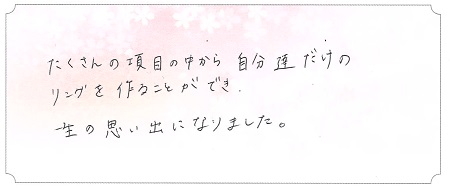 たくさんの項目の中から 自分達だけの
リングを作ることができ.
一生の思い出になりました。